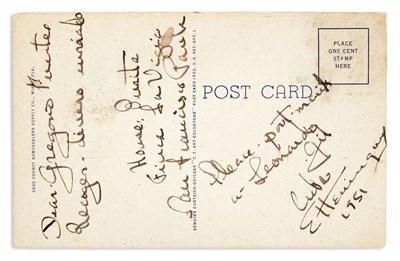 DADE COUNTY NEWSDEALERS SUPPLY CO., MIAMI, FLA.
Dear Gregorio Fuentes
Recoger dinero enviado
Home: Puesto
Finca La Vigia
San Francisco de Paula
GENUINE CURTEICH-CHICAGO "C.T. ART-COLORTONE" POST CARD (REG. U.S. PAT. OFF.)
POST CARD
PLACE
ONE CENT
STAMP
HERE
Please
a Leonardo
Cuba
E Hemingway
1951